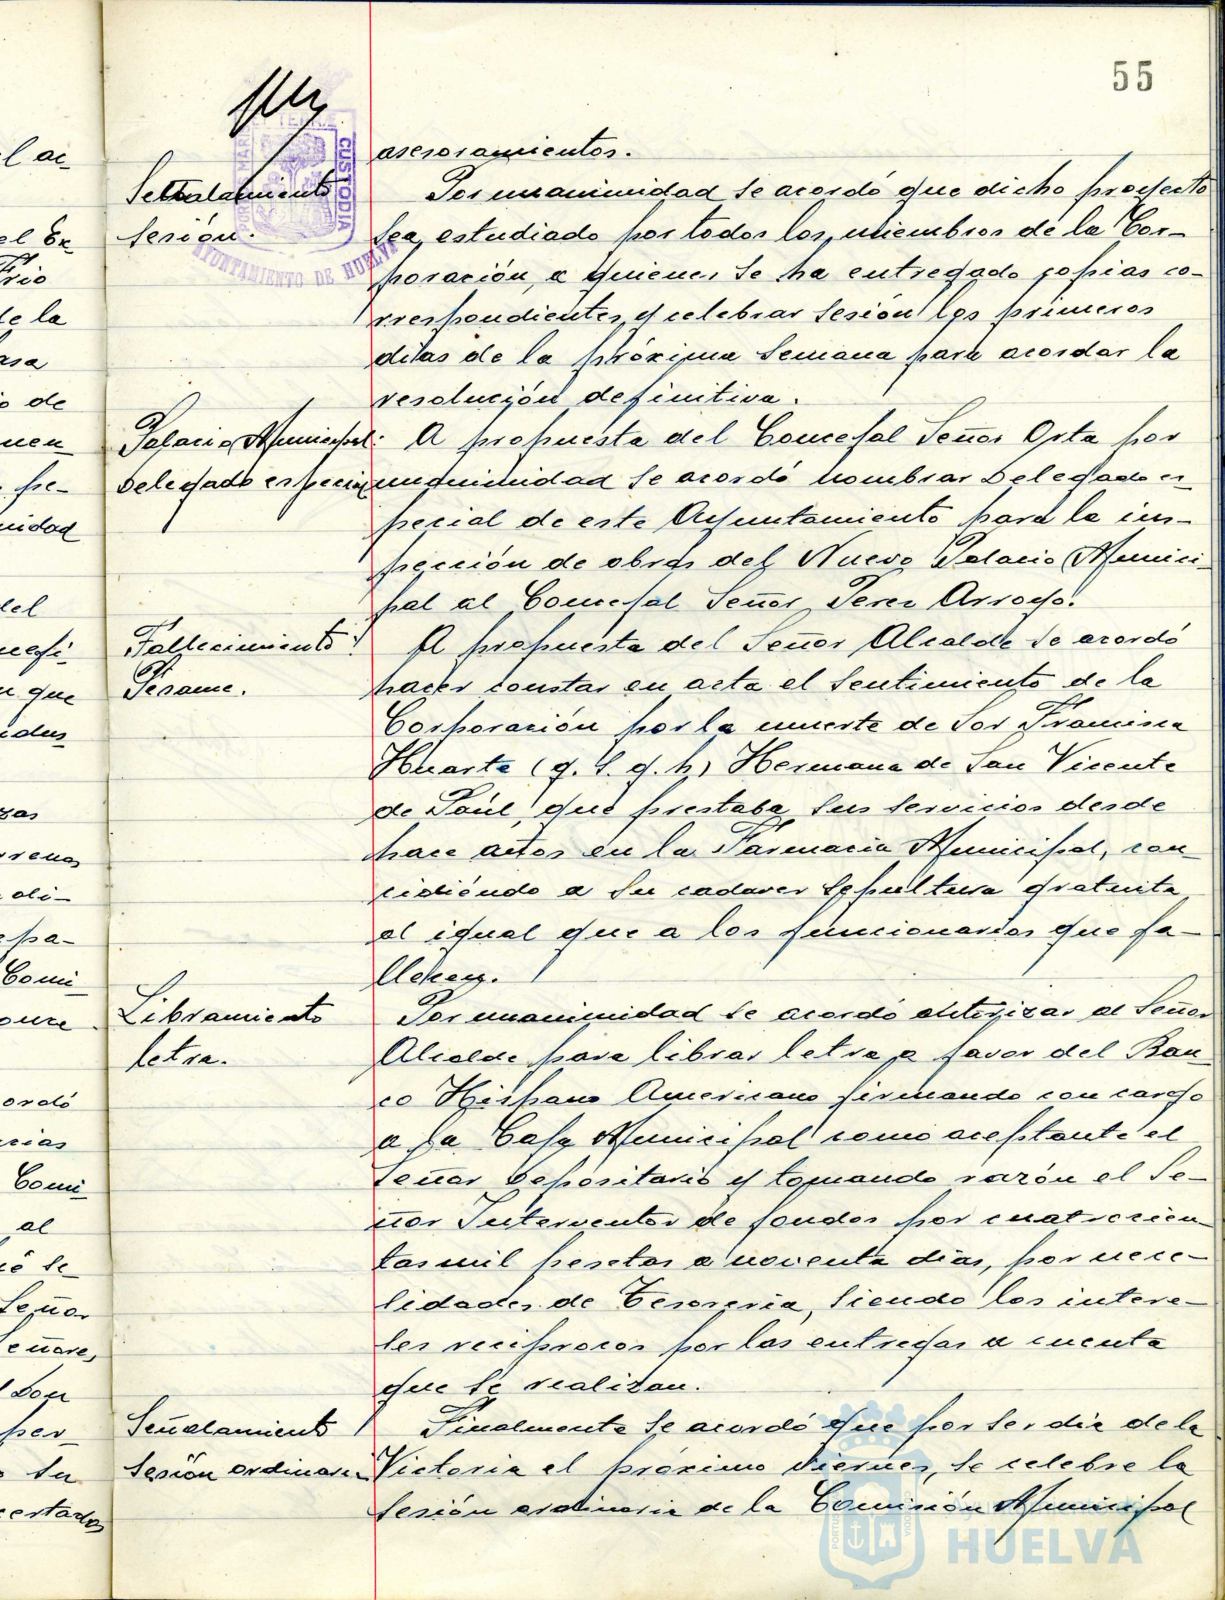 55
CUSTODIA
AYUNTAMIENTO DE HUELVA
asesoramientos.
Señalamiento
sesión.
Por unanimidad se acordó que dicho proyecto
sea estudiado por todos los miembros de la Cor-
poración, a quienes se ha entregado copias co-
rrespondientes y celebrar sesión los primeros
días de la próxima semana para acordar la
resolución definitiva.
Palacio Municipal:
Delegado especial
A propuesta del Concejal Señor Orta por
unanimidad se acordó nombrar Delegado es-
pecial de este Ayuntamiento para la ins-
pección de obras del Nuevo Palacio Munici-
pal al Concejal Señor Perez Arroyo.
Fallecimiento:
Pésame.
A propuesta del Señor Alcalde se acordó
hacer constar en acta el sentimiento de la
Corporación por la muerte de Sor Francisca
Huarte (q. s. g. h) Hermana de San Vicente
de Paúl, que prestaba sus servicios desde
hace años en la Farmacia Municipal, con-
cidiéndo a su cadaver sepultura gratuita
al igual que a los funcionarios que fa-
llecen.
Libramiento
letra.
Por unanimidad se acordó autorizar al Señor
Alcalde para librar letra a favor del Ban-
co Hispano Americano firmando con cargo
a la Caja Municipal como aceptante el
Señor Depositario y tomando razón el Se-
ñor Interventor de fondos por cuatrocien-
tas mil pesetas a noventa días, por nece-
sidades de Tesorería, siendo los intere-
ses recíprocos por las entregas a cuenta
que se realizan.
Señalamiento
sesión ordinaria
Finalmente se acordó que por ser dia de la
Victoria el próximo viernes, se celebre la
sesión ordinaria de la Comisión Municipal
HUELVA